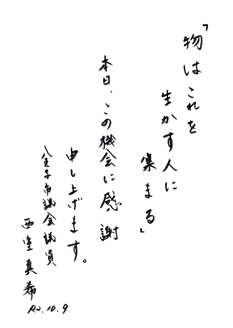 「物はこれを
生かす人に
集まる」
本日、この機会に感謝
申し上げます。
八王子市議会議員
西室真希